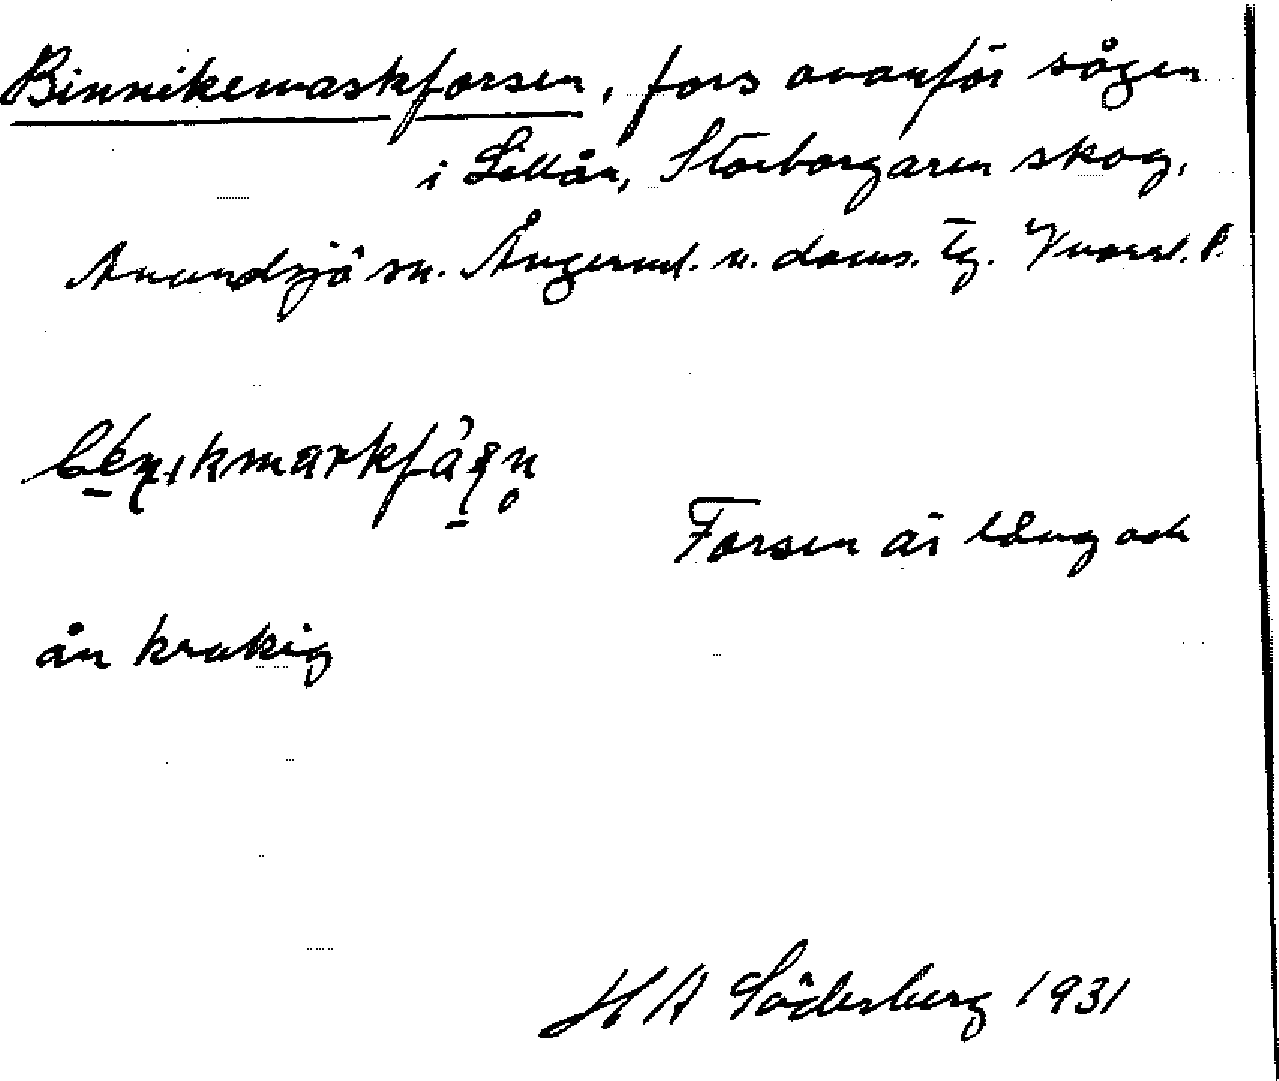 Binnikemaskforsen, fors ovanför sågen
i Lillån, Storborgaren skog,
Anundsjö sn. Ångerml. v. doms. Tg.
Forsen är lång och
ån krokig
H A Söderberg 1931